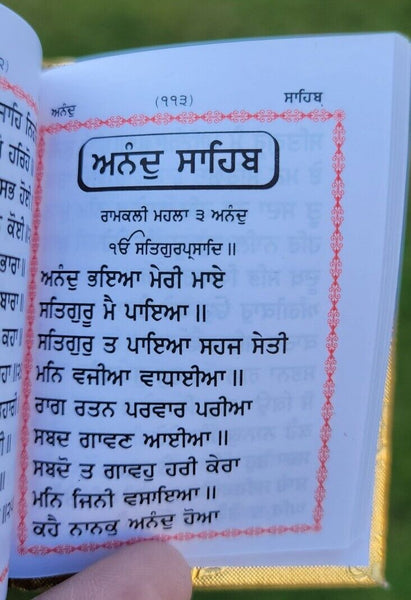 ਅਨੰਦੁ (੧੧੩) ਸਾਹਿਬ
ਅਨੰਦੁ ਸਾਹਿਬ
ਰਾਮਕਲੀ ਮਹਲਾ ੩ ਅਨੰਦੁ
ੴ ਸਤਿਗੁਰਪ੍ਰਸਾਦਿ॥
ਅਨੰਦੁ ਭਇਆ ਮੇਰੀ ਮਾਏ
ਸਤਿਗੁਰੂ ਮੈ ਪਾਇਆ॥
ਸਤਿਗੁਰੁ ਤ ਪਾਇਆ ਸਹਜ ਸੇਤੀ
ਮਨਿ ਵਜੀਆ ਵਾਧਾਈਆ॥
ਰਾਗ ਰਤਨ ਪਰਵਾਰ ਪਰੀਆ
ਸਬਦ ਗਾਵਣ ਆਈਆ॥
ਸਬਦੋ ਤ ਗਾਵਹੁ ਹਰੀ ਕੇਰਾ
ਮਨਿ ਜਿਨੀ ਵਸਾਇਆ॥
ਕਹੈ ਨਾਨਕੁ ਅਨੰਦੁ ਹੋਆ